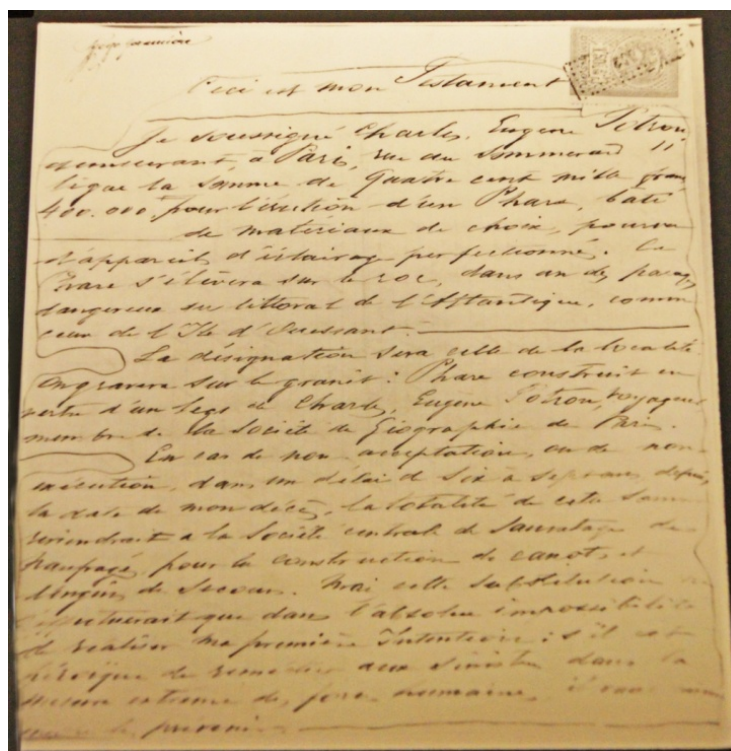 page première
Ceci est mon Testament
Je soussigné Charles, Eugène Potron
demeurant, à Paris, rue du Sommerard 11
lègue la somme de quatre cent mille francs
400.000 pour l'érection d'un Phare, bâti
de matériaux de choix, pourvu
d'appareils d'éclairage perfectionné. Ce
Phare s'élèvera sur le roc, dans un des parages
dangereux du littoral de l'Atlantique, comme
ceux de l'Ile d'Ouessant.
La désignation sera celle de la localité
On gravera sur le granit : Phare construit en
vertu d'un legs de Charles, Eugène Potron, voyageur
membre de la Société de Géographie de Paris.
En cas de non acceptation, ou de non
exécution, dans un délai de six à sept ans, depuis
la date de mon décès, la totalité de cette somme
reviendrait à la Société centrale de Sauvetage des
naufragés, pour la construction de canots, et
d'engins de secours. Mais cette substitution ne
s'effectuerait que dans l'absolue impossibilité
de réaliser ma première Intention ; s'il est
héroïque de remédier aux sinistres dans la
mesure extrême des forces humaines, il vaut
prévenir.